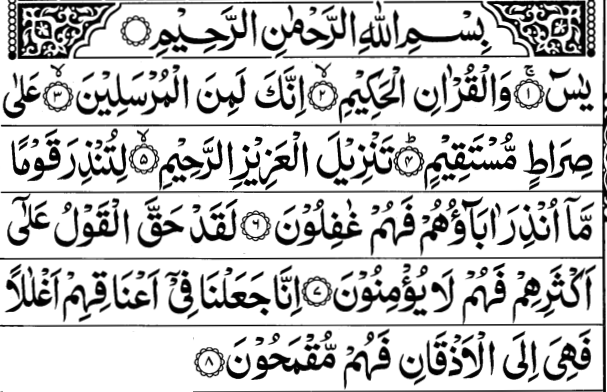 بِسْمِ اللهِ الرَّحْمٰنِ الرَّحِيْمِ ۝
يٰسٓ ۝١ وَالْقُرْاٰنِ الْحَكِيْمِ ۝٢ اِنَّكَ لَمِنَ الْمُرْسَلِيْنَ ۝٣ عَلٰى
صِرَاطٍ مُّسْتَقِيْمٍ ۝٤ تَنْزِيْلَ الْعَزِيْزِ الرَّحِيْمِ ۝٥ لِتُنْذِرَ قَوْمًا
مَّآ اُنْذِرَ اٰبَآؤُهُمْ فَهُمْ غٰفِلُوْنَ ۝٦ لَقَدْ حَقَّ الْقَوْلُ عَلٰٓى
اَكْثَرِهِمْ فَهُمْ لَا يُؤْمِنُوْنَ ۝٧ اِنَّا جَعَلْنَا فِيْٓ اَعْنَاقِهِمْ اَغْلٰلًا
فَهِيَ اِلَى الْاَذْقَانِ فَهُمْ مُّقْمَحُوْنَ ۝٨